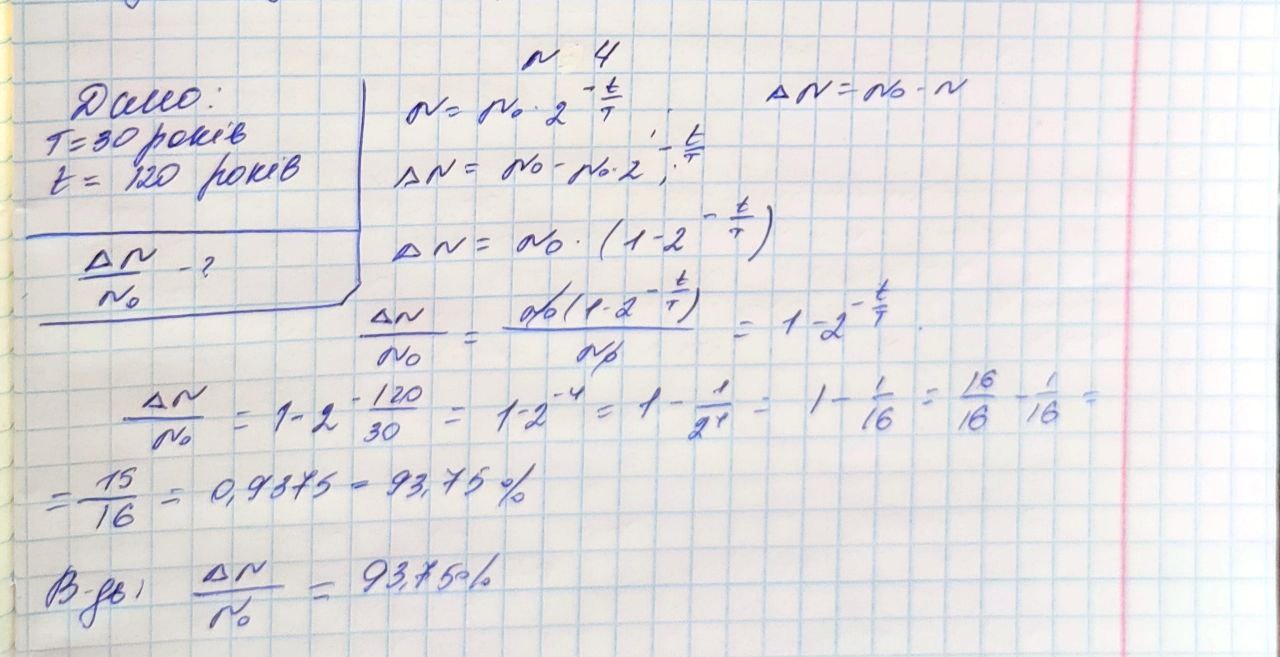 N 4
Дано:
T = 30 років
t = 120 років
ΔN/N₀ - ?
N = N₀ · 2^(-t/T) ; ΔN = N₀ - N
ΔN = N₀ - N₀ · 2^(-t/T) ;
ΔN = N₀ · (1 - 2^(-t/T))
ΔN/N₀ = N₀(1 - 2^(-t/T))/N₀ = 1 - 2^(-t/T) .
ΔN/N₀ = 1 - 2^(-120/30) = 1 - 2^(-4) = 1 - 1/2^4 = 1 - 1/16 = 16/16 - 1/16 =
= 15/16 = 0,9375 = 93,75 %
В-дь: ΔN/N₀ = 93,75%